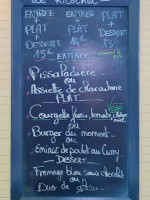 ENTRÉE ENTRÉE PLAT
+ + +
PLAT PLAT DESSERT
+ 14€ 13€
DESSERT
15€
Pissaladière
ou
Assiette de charcuterie
PLAT
Courgette farcie, tomate,
ou
Burger du moment
ou
Emincé de poulet au Curry
DESSERT
Fromage blanc sauce chocolat
ou
Duo de